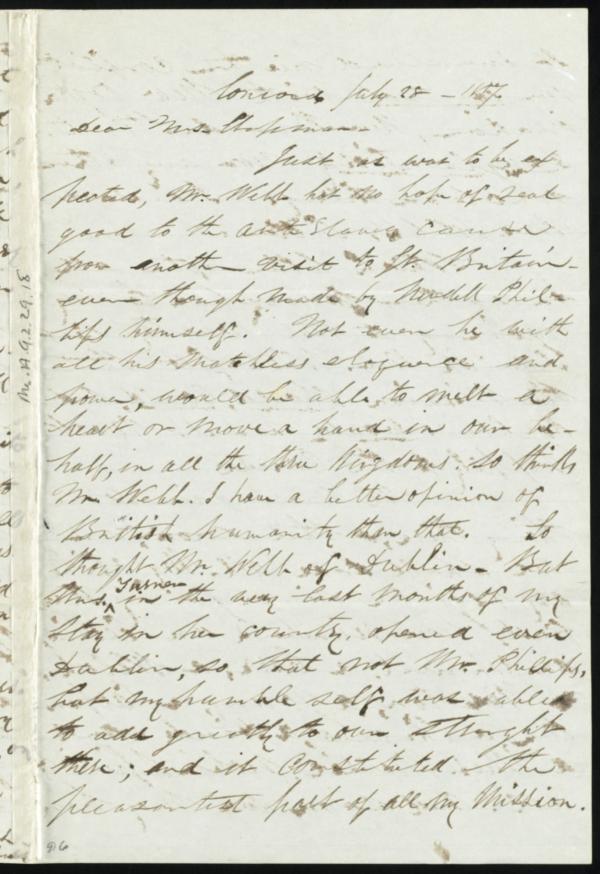 Concord July 28 - 1857
Dear Mrs. Chapman -
Just as was to be ex
pected, Mr. Webb has no hope of real
good to the anti Slavery cause
from another visit to Gt. Britain -
even though made by Wendell Phil-
lips himself. Not even he with
all his matchless eloquence and
power, would be able to melt a
heart or move a hand in our be-
half, in all the three kingdoms. So thinks
Mr Webb. I have a better opinion of
British humanity than that. So
thought Mr. Webb of Dublin - But
Mrs. Turner in the very last months of my
stay in her country, opened even
Dublin, so that not Mr. Phillips,
but my humble self was able
to add greatly to our strength
there; and it constituted the
pleasantest part of all my Mission.
Ms. A 9.2.29.18